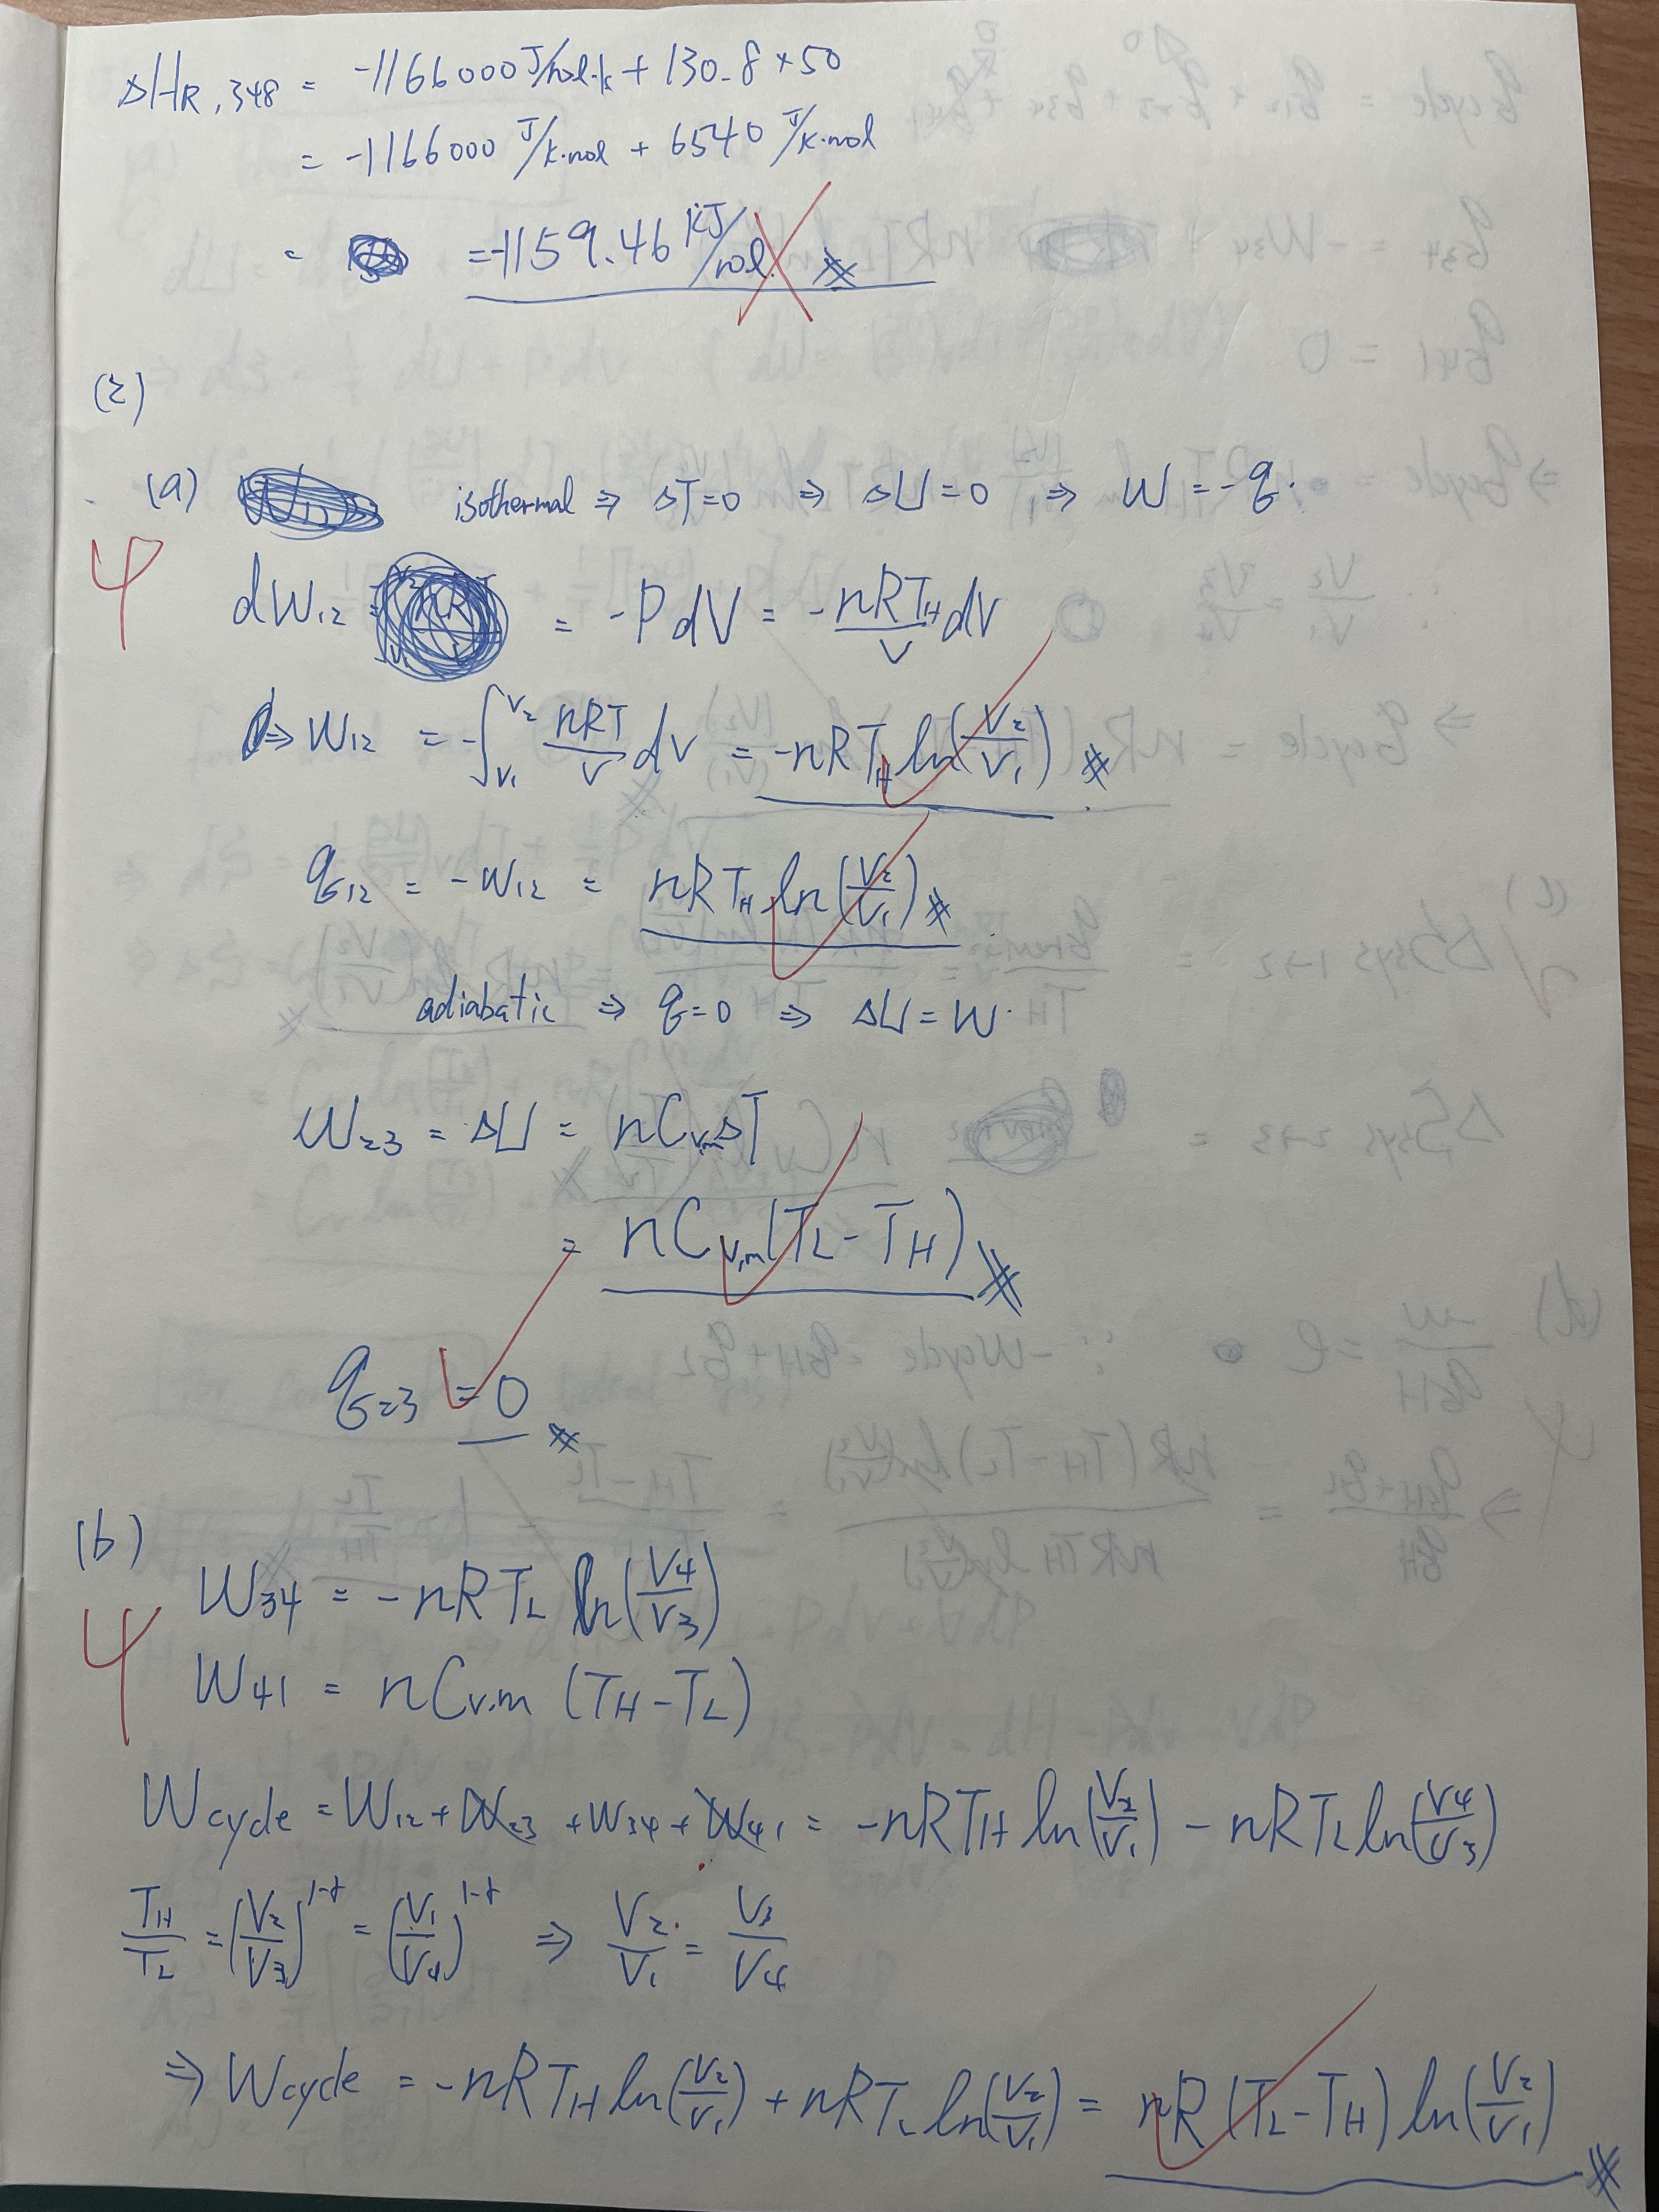 ΔH_R,348 = -1166000 J/mol·k + 130.8 × 50
= -1166000 J/K·mol + 6540 J/K·mol
= = -1159.46 KJ/mol
(2)
(a) isothermal ⇒ ΔT=0 ⇒ ΔU=0 ⇒ W=-q.
4
dW₁₂ = = -PdV = -nRT_H/V dV
⇒ W₁₂ = -∫_{V₁}^{V₂} nRT/V dV = -nRT_H ln(V₂/V₁)
q₁₂ = -W₁₂ = nRT_H ln(V₂/V₁)
adiabatic ⇒ q=0 ⇒ ΔU=W.
W₂₃ = ΔU = nC_v,mΔT
= nC_v,m(T_L-T_H)
q₂₃ = 0
(b)
4
W₃₄ = -nRT_L ln(V₄/V₃)
W₄₁ = nC_v,m (T_H-T_L)
W_cycle = W₁₂ + W₂₃ + W₃₄ + W₄₁ = -nRT_H ln(V₂/V₁) - nRT_L ln(V₄/V₃)
T_H/T_L = (V₂/V₃)^{1-γ} = (V₁/V₄)^{1-γ} ⇒ V₂/V₁ = V₃/V₄
⇒ W_cycle = -nRT_H ln(V₂/V₁) + nRT_L ln(V₂/V₁) = nR(T_L-T_H) ln(V₂/V₁)